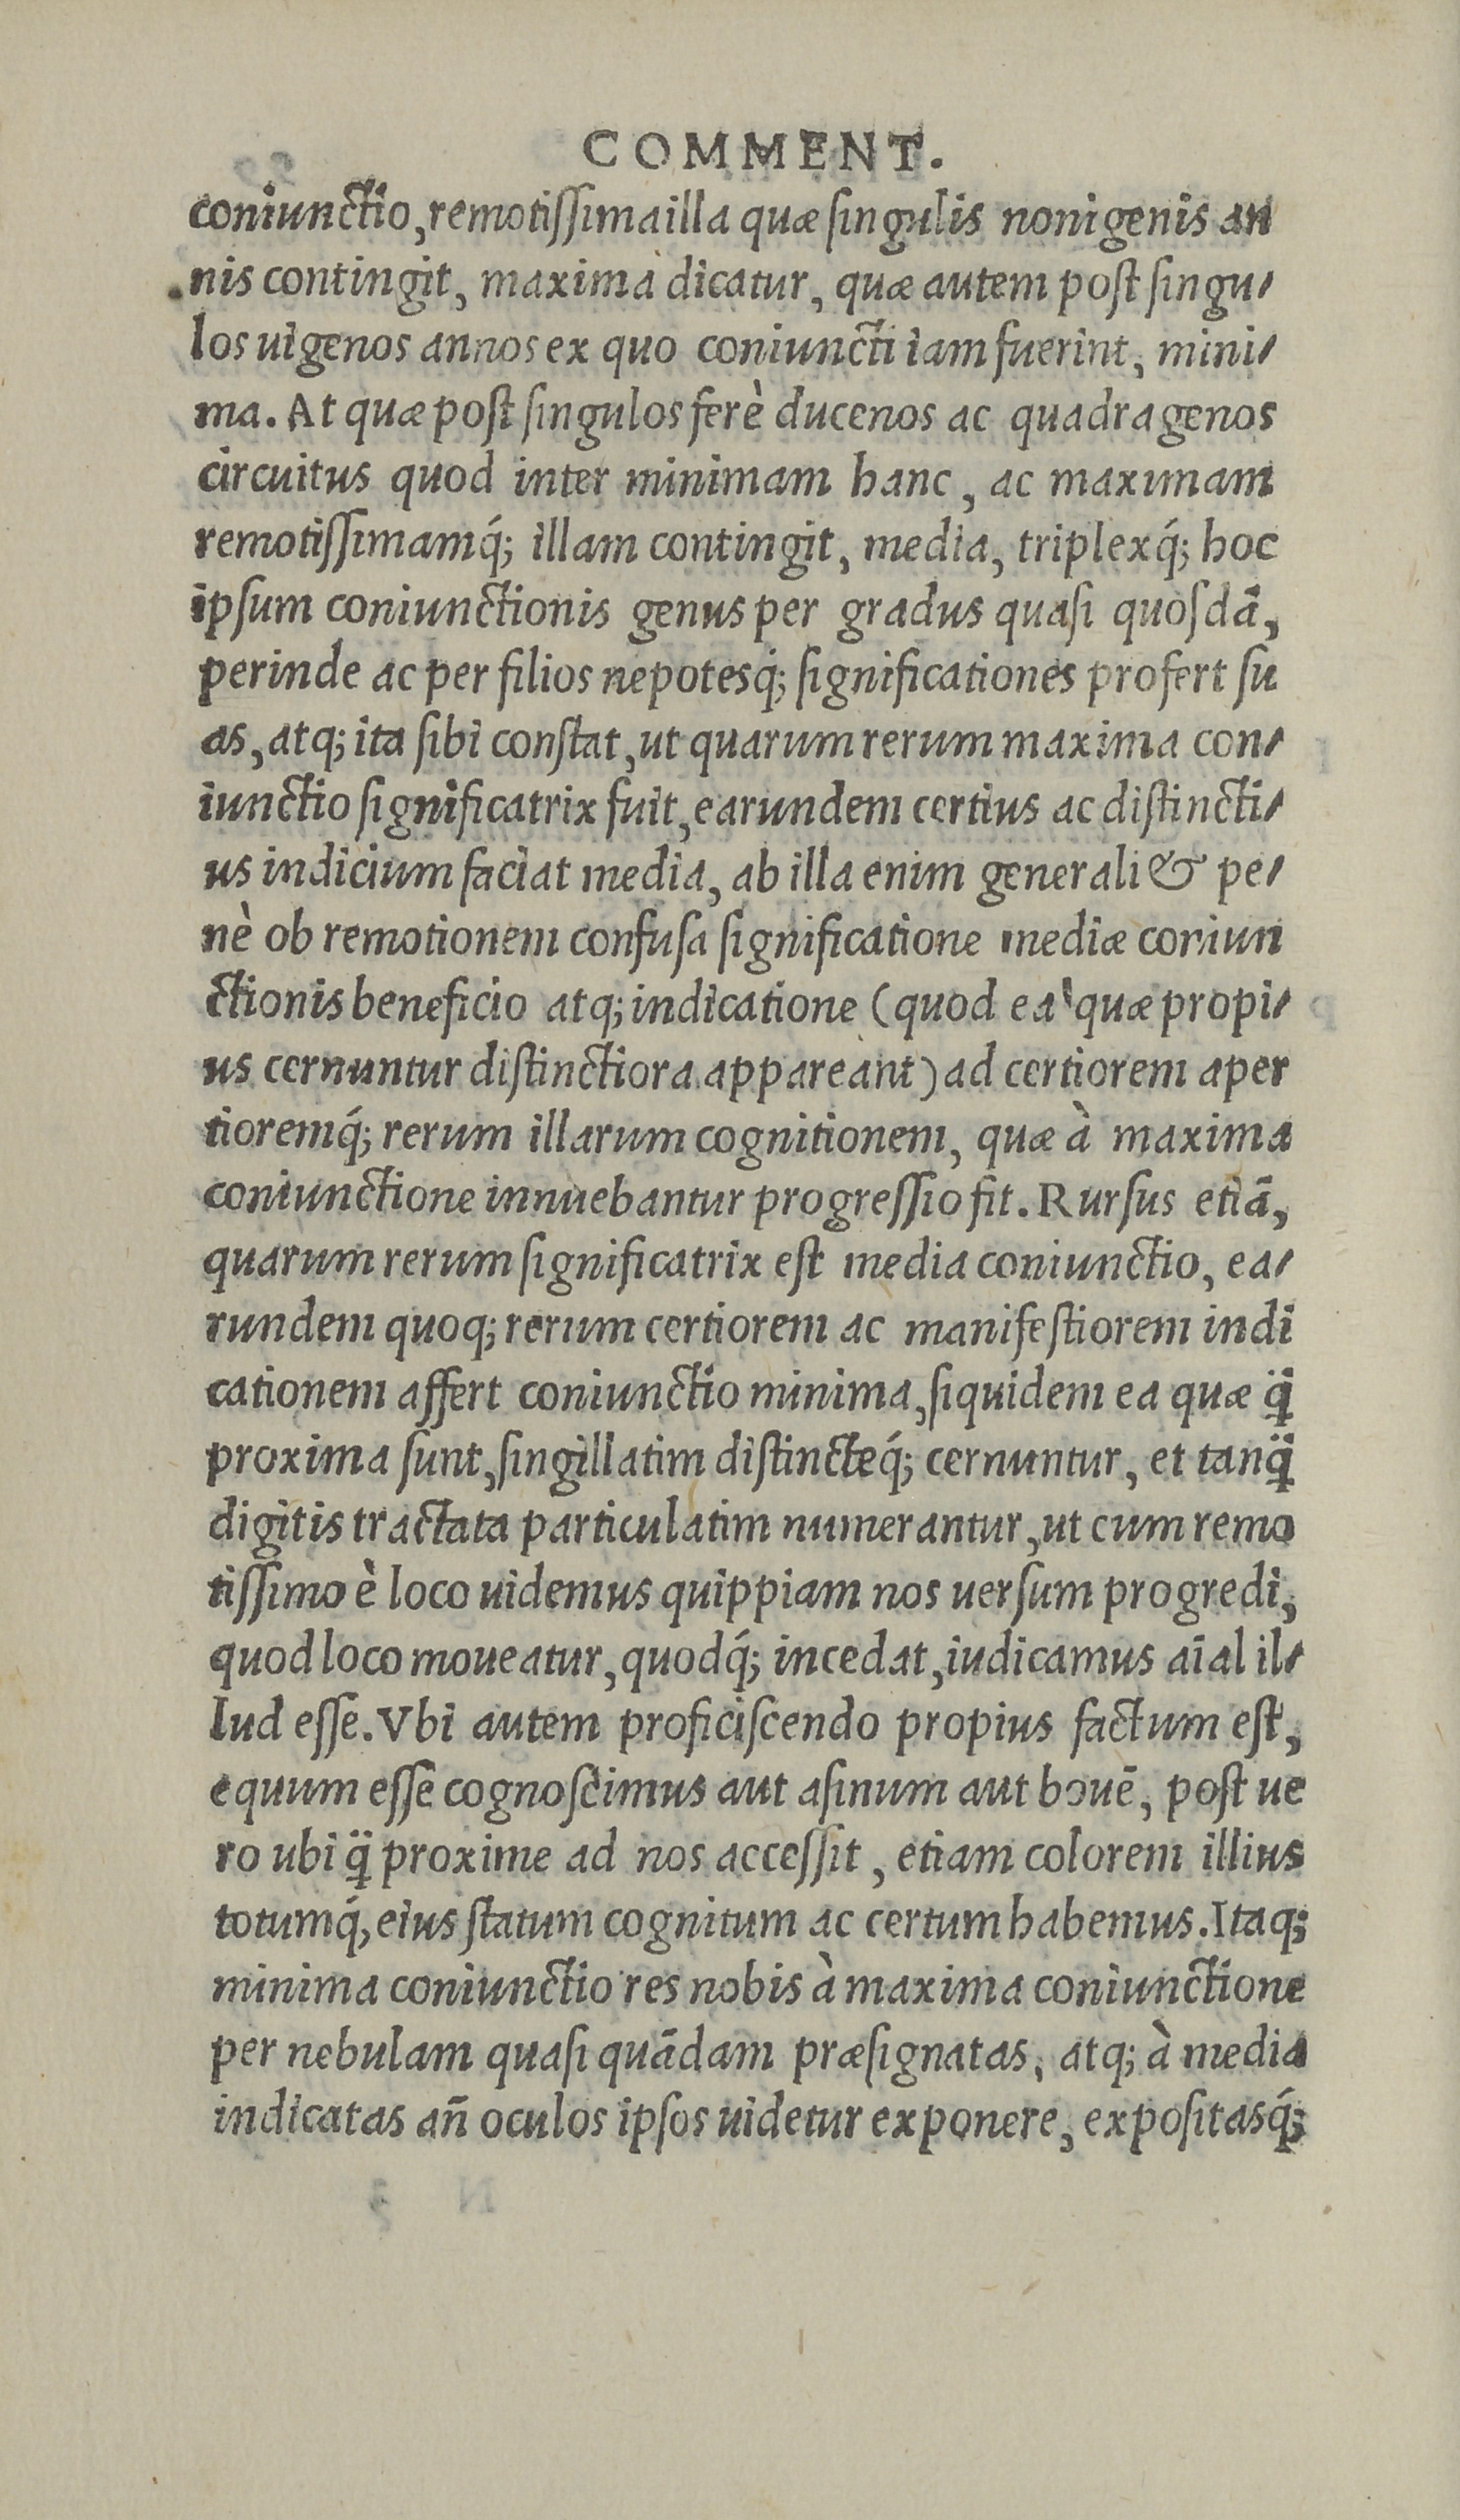 COMMENT.
coniunctio, remotissima illa quæ singulis nonigenis an
nis contingit, maxima dicatur, quæ autem post singu-
los uigenos annos ex quo coniuncti iam fuerint, mini-
ma. At quæ post singulos ferè ducenos ac quadragenos
circuitus quod inter minimam hanc, ac maximam
remotissimamq́; illam contingit, media, triplexq́; hoc
ipsum coniunctionis genus per gradus quasi quosdã,
perinde ac per filios nepotesq́; significationes profert su
as, atq; ita sibi constat, ut quarum rerum maxima con-
iunctio significatrix fuit, earundem certius ac distincti-
us indicium faciat media, ab illa enim generali & pe-
nè ob remotionem confusa significatione mediæ coniun
ctionis beneficio atq; indicatione (quod ea quæ propi-
us cernuntur distinctiora appareant) ad certiorem aper
tioremq́; rerum illarum cognitionem, quæ à maxima
coniunctione innuebantur progressio fit. Rursus etiã,
quarum rerum significatrix est media coniunctio, ea-
rundem quoq; rerum certiorem ac manifestiorem indi
cationem affert coniunctio minima, siquidem ea quæ q̈
proxima sunt, singillatim distincteq́; cernuntur, et tanq̈
digitis tractata particulatim numerantur, ut cum remo
tissimo è loco uidemus quippiam nos uersum progredi,
quod loco moueatur, quodq́; incedat, iudicamus aĩal il-
lud esse. Vbi autem proficiscendo propius factum est,
equum esse cognoscimus aut asinum aut bouẽ, post ue
ro ubi q̈ proxime ad nos accessit, etiam colorem illius
totumq́, eius statum cognitum ac certum habemus. Itaq;
minima coniunctio res nobis à maxima coniunctione
per nebulam quasi quãdam præsignatas, atq; à media
indicatas añ oculos ipsos uidetur exponere, expositasq́;